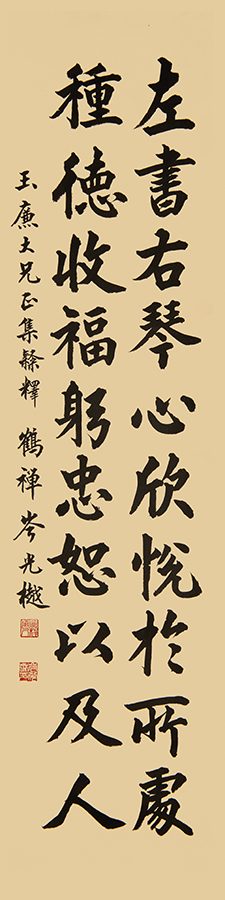 左書右琴心欣悅於所處
種德收福躬忠恕以及人
玉廉大兄正集隸釋 鶴禅岑光樾